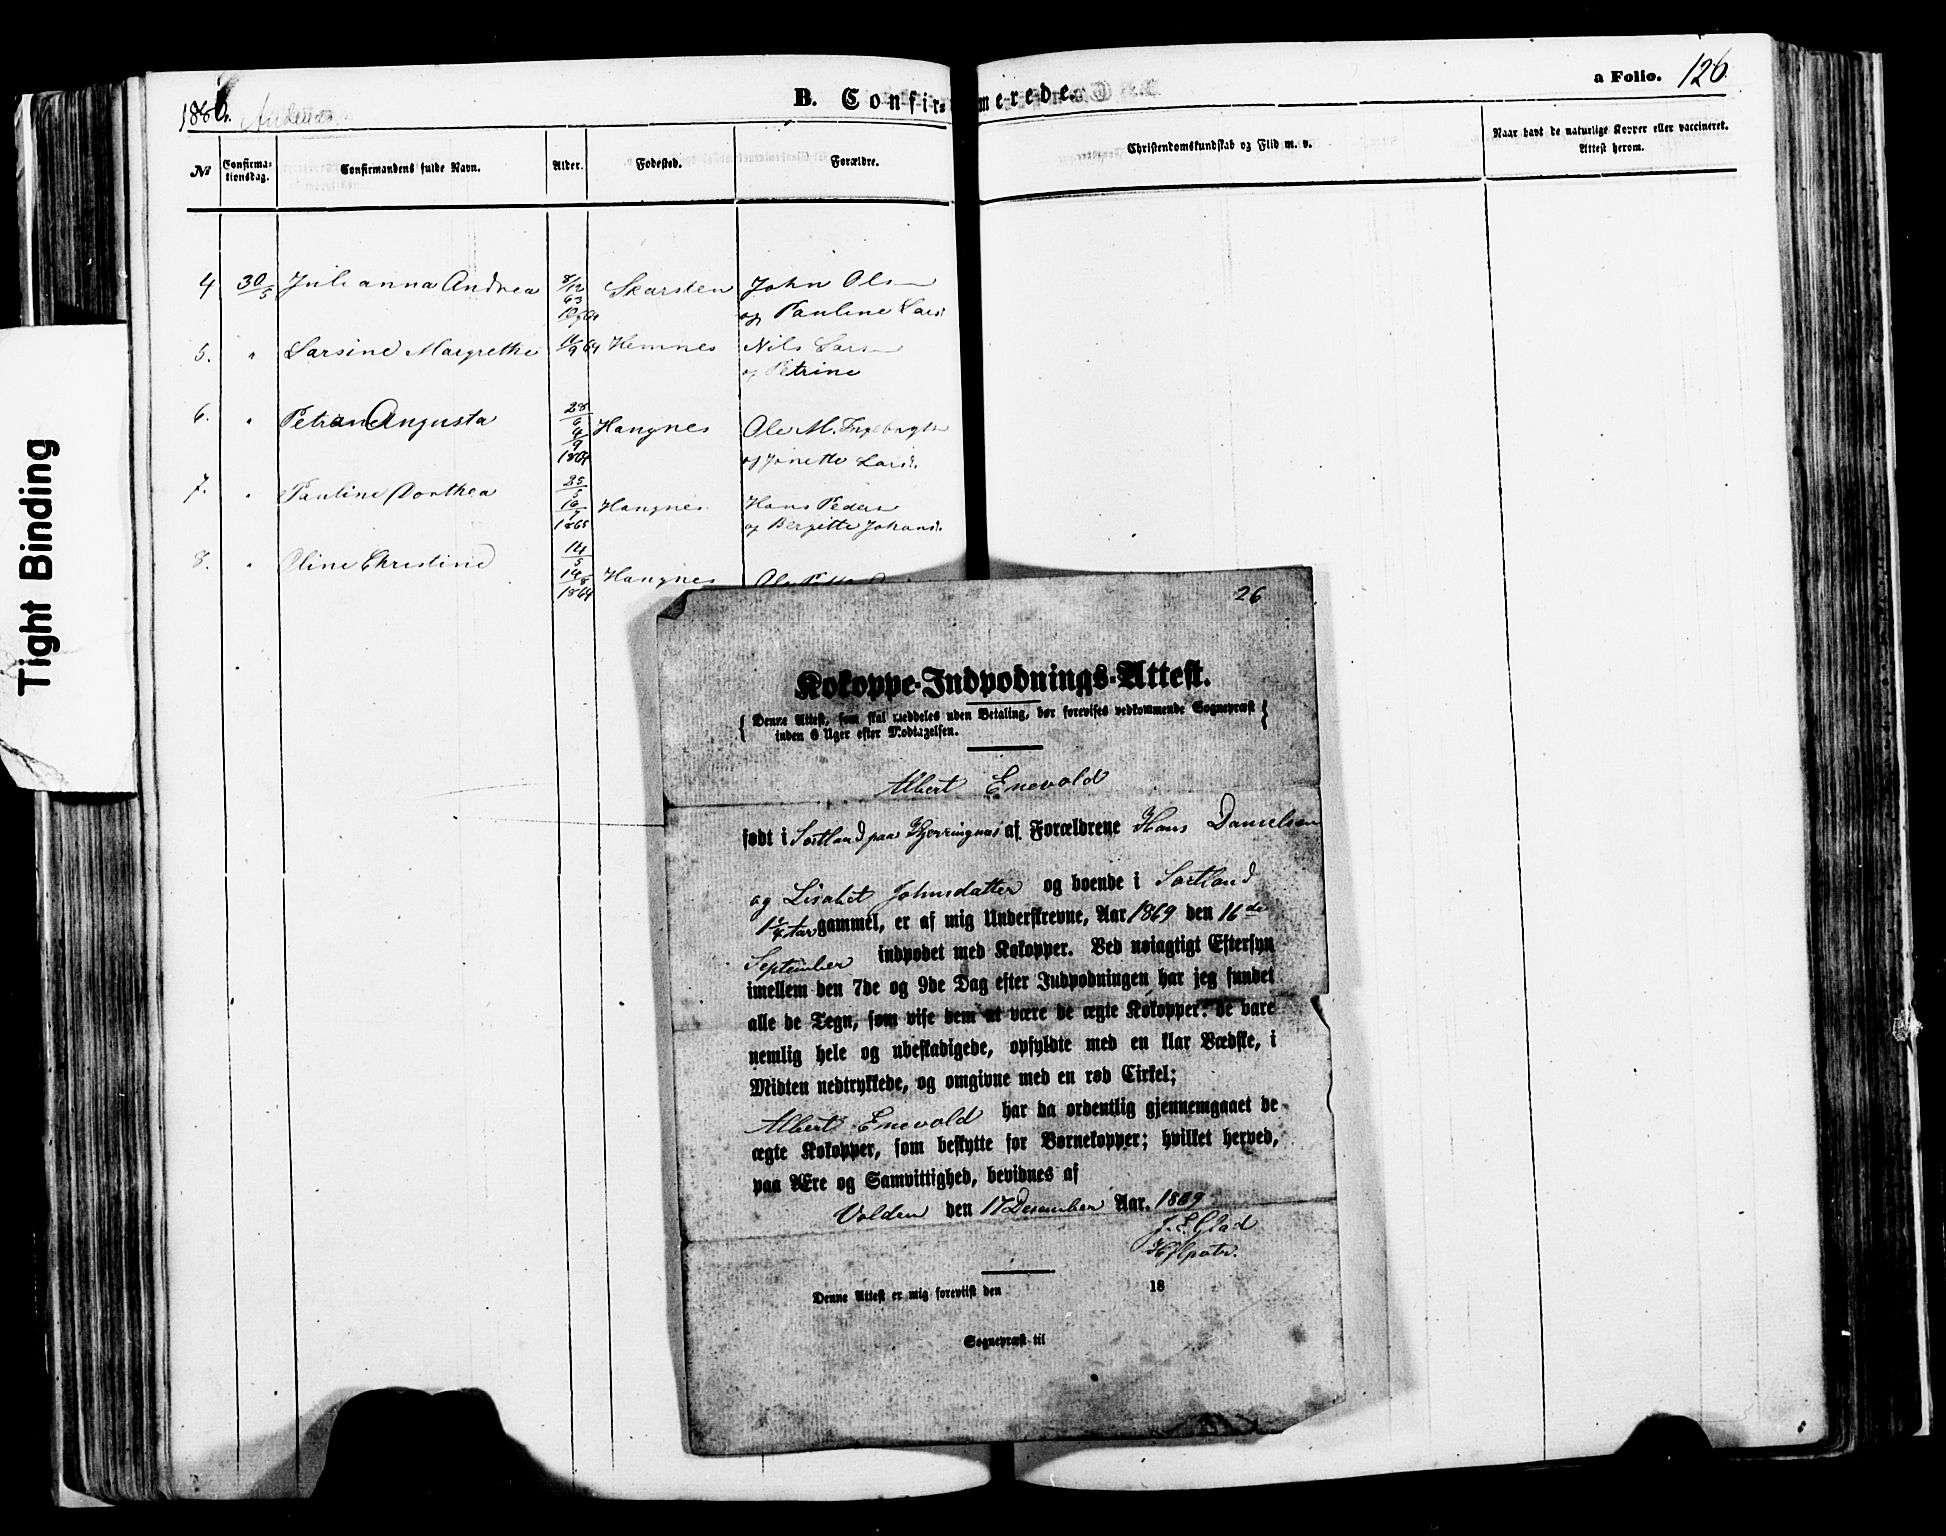 1880. Andenæs
B. Confirmerede.
a Folio. 126
№ Confirmationsdag. Confirmandens fulde Navn. Alder. Fødested. Forældre. Christendomskundskab og Flid m. v. Naar havt de naturlige Kopper eller vaccineret. Attest herom.
4 30/5 Julianna Andrea 8/12 63 Skarsten John Olsen
og Pauline Larsd.
5. " Larsine Margrethe 11/9 64 Hemnes Nils Larsen
og Petrine
6. " Petrine Augusta 28/6 4/9 1864 Haugnes Ole M. Ingebrigts.
og Jonette Larsd.
7. " Pauline Dorthea 25/5 16/7 1865 Haugnes Hans Peders.
og Bergitte Johansd.
8. " Oline Christine 14/5 14/8 1864 Haugnes Ole
Tight Binding
26
Kokoppe-Indpodnings-Attest.
{ Denne Attest, som skal meddeles uden Betaling, bør forevises vedkommende Sognepræst }
inden 6 Uger efter Modtagelsen.
Albert Enevold
født i Sortland paa Kjerringnes af Forældrene Hans Danielsen
og Lisabet Johnsdatter og boende i Sortland
1/4 Aar gammel, er af mig Underskrevne, Aar 1869 den 16de
September indpodet med Kokopper. Ved nøiagtigt Eftersyn
imellem den 7de og 9de Dag efter Indpodningen har jeg fundet
alle de Tegn, som vise dem at være de ægte Kokopper: de vare
nemlig hele og ubeskadigede, opfyldte med en klar Vædske, i
Midten nedtrykkede, og omgivne med en rød Cirkel;
Albert Enevold har da ordentlig gjennemgaaet de
ægte Kokopper, som beskytte for Børnekopper; hvilket herved,
paa Ære og Samvittighed, bevidnes af
Volden den 17 December Aar. 1869
J. E. Glad
Hjlpvtr.
Denne Attest er mig foreviist den 18
Sognepræst til